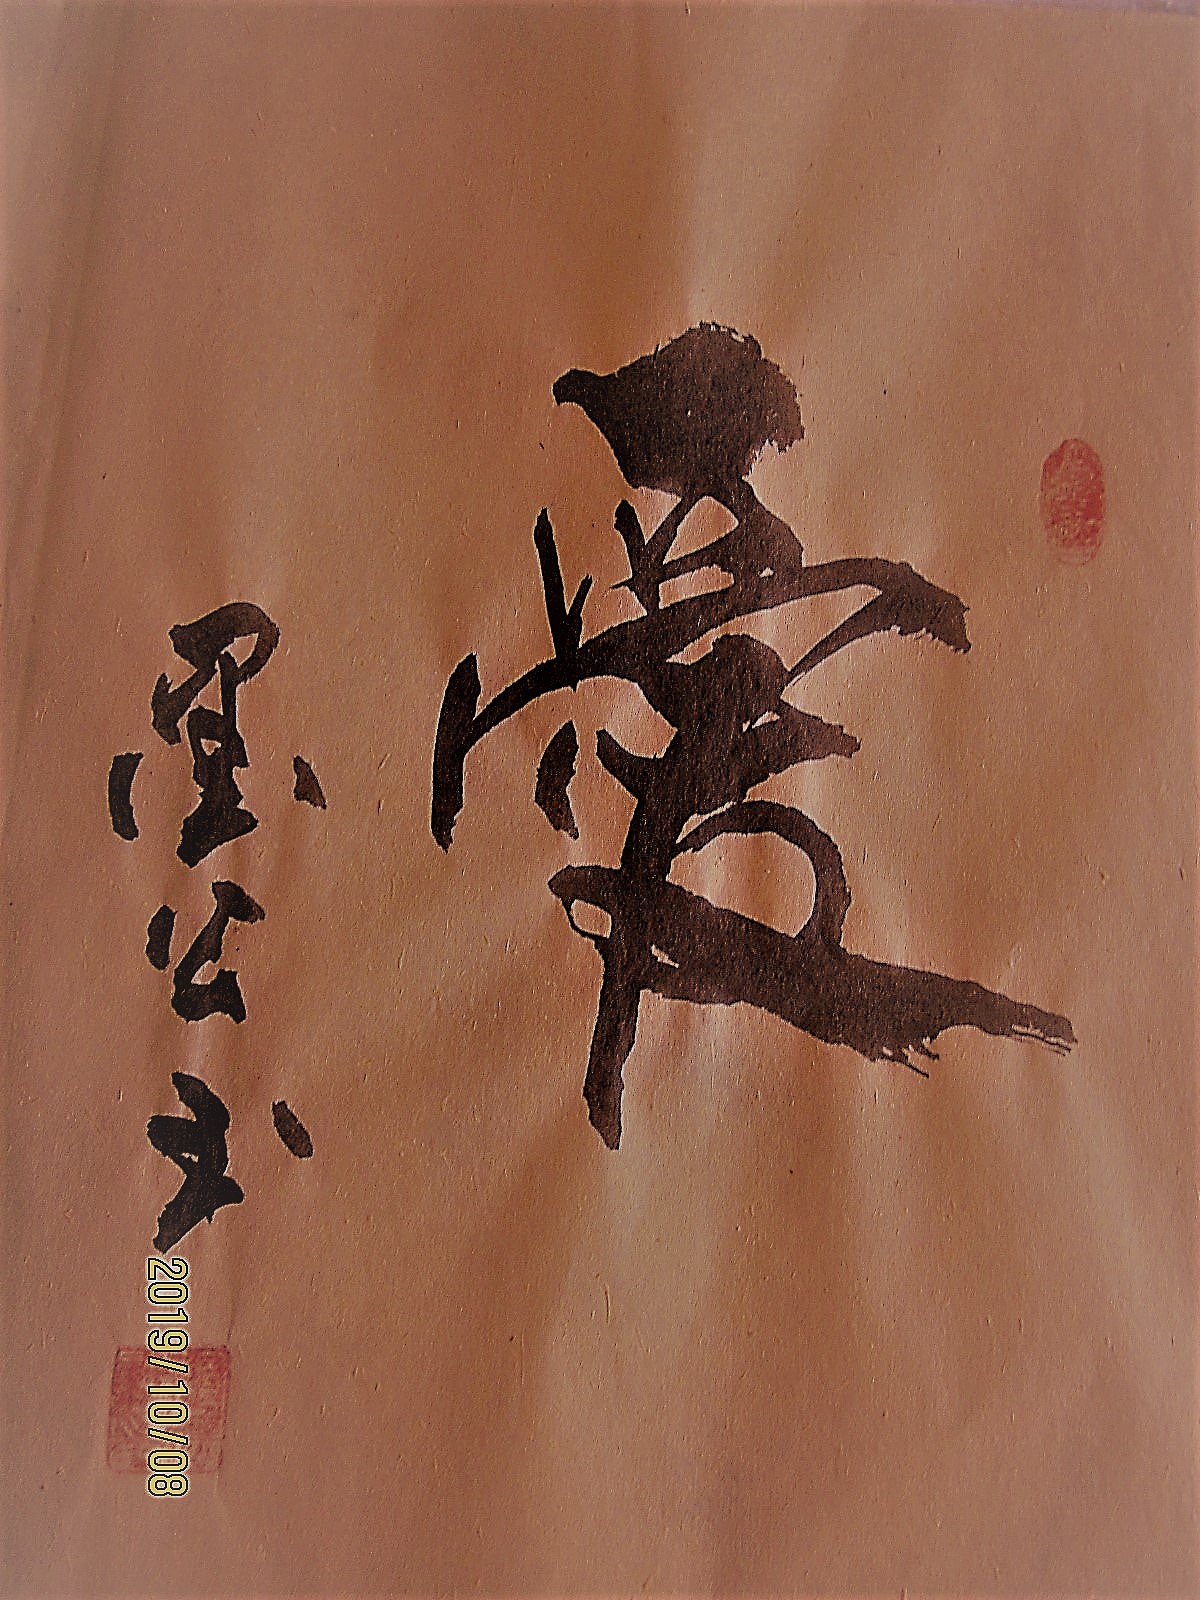 愛
墨公书
2019/10/08